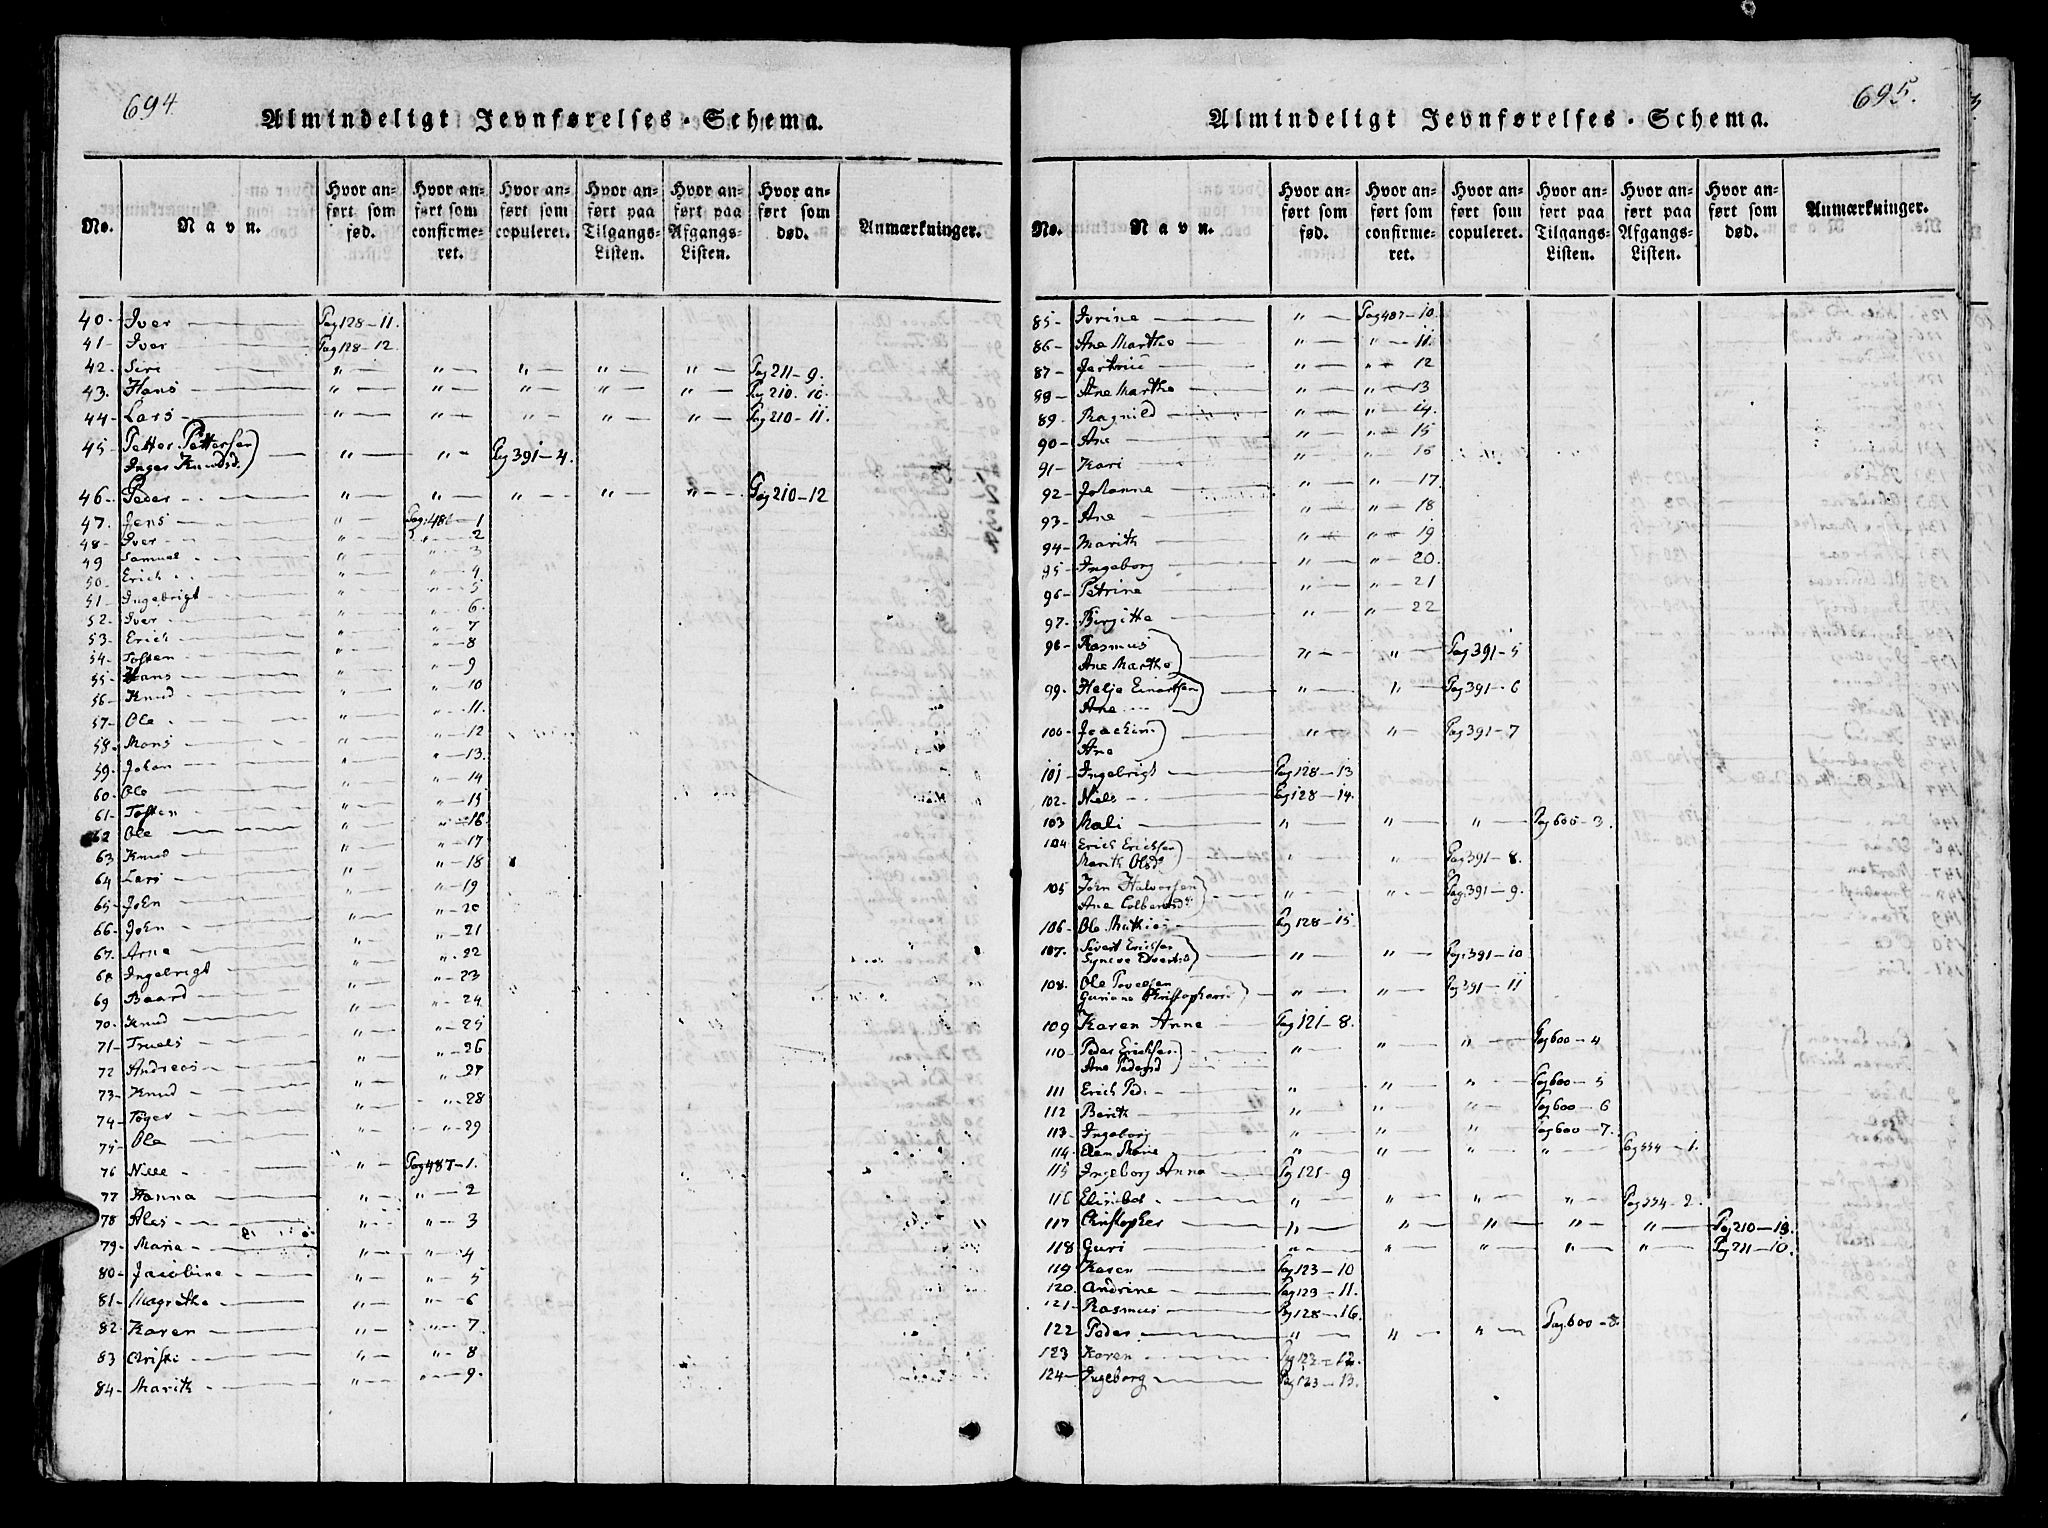 694.
Almindeligt Jevnførelses-Schema.
No. Navn. Hvor anført som fød. Hvor anført som confirmeret. Hvor anført som copuleret. Hvor anført paa Tilgangs-Listen. Hvor anført paa Afgangs-Listen. Hvor anført som død. Anmærkninger.
40- Iver Pag128-11.
41- Iver Pag128-12.
42- Siri " " " " " Pag211-9.
43- Hans " " " " " Pag210.10.
44- Lars " " " " " Pag210-11.
45- Petter Pettersen
Inger Knudsd. " " Pag391-4.
46- Peder " " " " " Pag210-12
47. Jens " Pag:486-1
48- Iver " " 2
49 Samuel " " 3
50- Erich " " 4
51- Ingebrigt " " 5
52- Iver " " 6.
53- Erich " " 7
54- Tosten " " 8
55- Hans " " 9
56- Knud " " 10
57- Ole " " 11.
58- Mons " " 12
59- Johan " " 13.
60- Ole " " 14
61- Tosten " " 15
62 Ole " " 16.
63 Knud " " 17
64 Lars " " 18
65- John " " 19
66- John " " 20
67. Arne " " 21
68 Ingebrigt " " 22
69 Baard " " 23
70- Knud " " 24
71- Truels " " 25
72 Andreas " " 26
73- Knud " " 27
74- Toger " " 28
75- Ole " " 29
76 Niels " Pag487-1.
77 Hanna " " 2
78 Ales " " 3
79- Maria " " 4
80- Jacobine " " 5
81- Magrethe " " 6
82. Karen " " 7
83 Christi " " 8
84- Marith " " 9.
695.
Almindeligt Jevnførelses-Schema.
No. Navn. Hvor anført som fød. Hvor anført som confirmeret. Hvor anført som copuleret. Hvor anført paa Tilgangs-Listen. Hvor anført paa Afgangs-Listen. Hvor anført som død. Anmærkninger.
85- Ivrine " Pag487-10.
86- Ane Marthe " " 11.
87- Jertrue " " 12
88- Ane Marthe " " 13
89. Ragnild " " 14.
90- Ane " " 15
91- Kari " " 16
92- Johanne " " 17.
93- Ane " " 18
94- Marith " " 19
95- Ingeborg " " 20.
96- Petrine " " 21
97- Birgitte " " 22
98- Rasmus
Ane Marthe " " Pag391-5
99. Helje Einartsen
Ane " " Pag391-6
100- Joachim
Ane " " Pag391-7
101- Ingebrigt Pag128-13
102- Niels Pag128-14.
103 Mali " " " Pag600-3.
104 Erich Erichsen
Marith Olsd. " " Pag391-8.
105 John Halvorsen
Ane Colbensd. " " Pag391-9.
106- Ole Mathias Pag128-15.
107. Sivert Erichsen
Syneve Edvartsd. " " Pag391-10
108. Ole Povelsen
Guriane Christophersd. " " Pag391-11
109 Karen Anne Pag121-8.
110- Peder Erichsen
Ane Pedersd " " " Pag600-4
111 Erich Ped. " " " Pag600-5
112 Berith " " " Pag600-6
113- Ingeborg " " " Pag600-7.
114- Elen Marie " " " " Pag554-1.
115 Ingeborg Anna Pag121-9
116 Elisabet " " " " Pag554-2.
117 Christopher " " " " " Pag210-13.
118 Guri " " " " " Pag211-10.
119 Karen Pag123-10
120. Andrine Pag123-11.
121- Rasmus Pag128-16.
122 Peder " " " Pag600-8.
123 Karen Pag123-12.
124- Ingeborg Pag123-13.